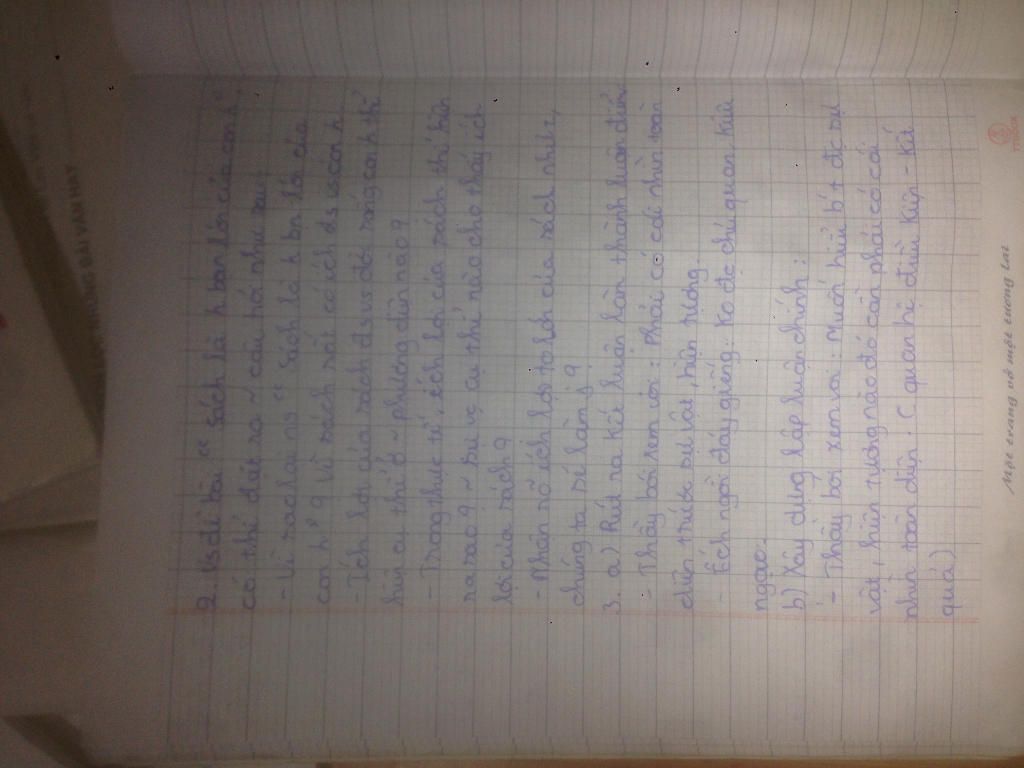 2. Vs đề bài " sách là h bạn lớn của con h"
có thể đặt ra ~ câu hỏi như sau:
- Vì sao lại ns " sách là h bn lớn của
con h" ? Vì sách rất có ích đs vs con h
- Ích lợi của sách đs vs đời sống con h thể
hiện cụ thể ở ~ phương diện nào ?
- Trong thực tế, ích lợi của sách thể hiện
ra sao ? ~ sự vc cụ thể nào cho thấy ích
lợi của sách ?
- Nhận rõ ích lợi to lớn của sách như z,
chúng ta sẽ làm j ?
3. a) Rút ra kết luận làm thành luận điểm
- Thầy bói xem voi : Phải có cái nhìn toàn
diện trước sự vật, hiện tượng.
- Ếch ngồi đáy giếng : Ko đc chủ quan, kiêu
ngạo.
b) Xây dựng lập luận chính :
- Thầy bói xem voi : Muốn hiểu biết đc sự
vật, hiện tượng nào đó cần phải có cái
nhìn toàn diện. ( quan hệ điều kiện - kết
quả )
Một trang vở một tương lai
NHỮNG BÀI VĂN HAY